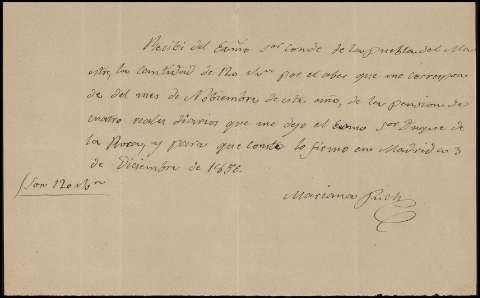 Recibí del Exmo Sor Conde de la Puebla del Ma
estre, la cantidad de 120 rs vn por el haber que me correspon
de del mes de Nobiembre de este año, de la pension de
cuatro reales diarios que me dejo el Exmo Sor Duque de
la Roca, y para que conste lo firmo en Madrid a 3
de Diciembre de
Son 120 rs vn
Mariana